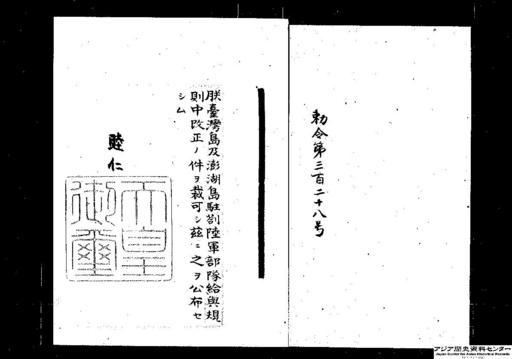 勅令第三百二十八号
朕臺灣島及澎湖島駐劄陸軍部隊給與規
則中改正ノ件ヲ裁可シ茲ニ之ヲ公布セ
シム
睦仁
天皇
御璽
アジア歴史資料センター
Japan Center for Asian Historical Records